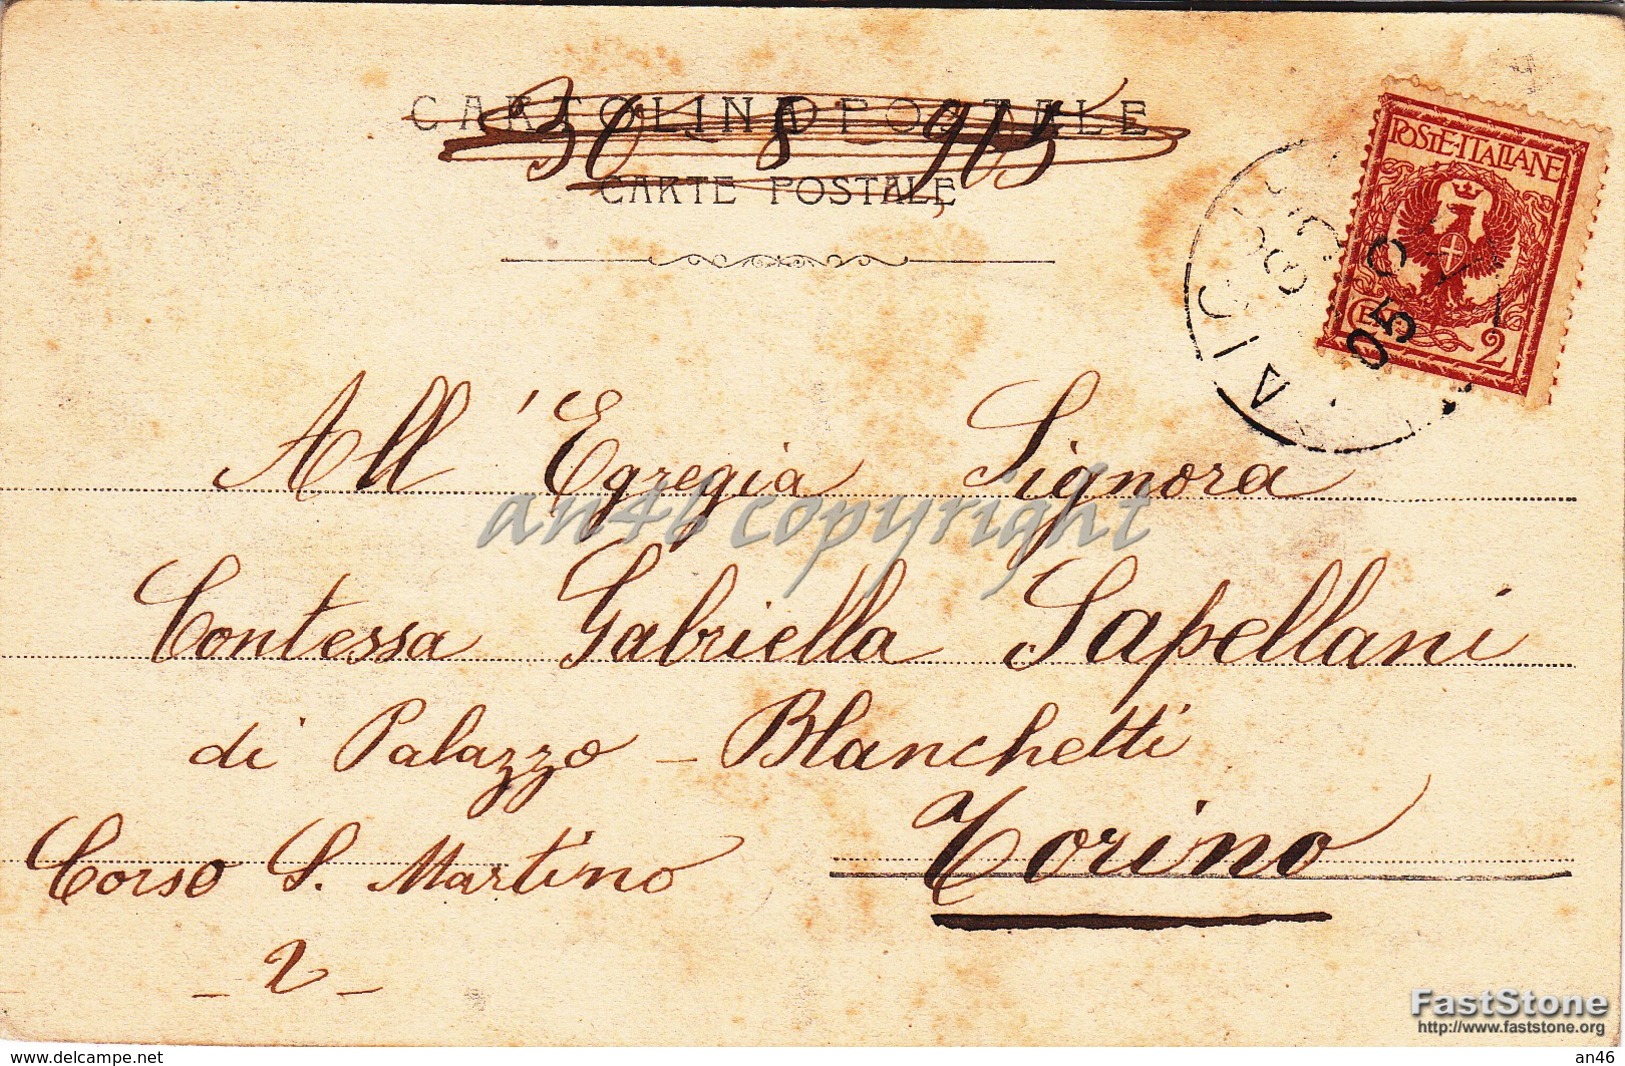 CARTOLINA POSTALE
30 8 905
CARTE POSTALE
POSTE·ITALIANE
2
05
All'Egregia Signora
Contessa Gabriella Sapellani
di Palazzo - Blanchetti
Corso S. Martino Torino
- 2 -
an46 copyright
FastStone
http://www.faststone.org
www.delcampe.net
an46